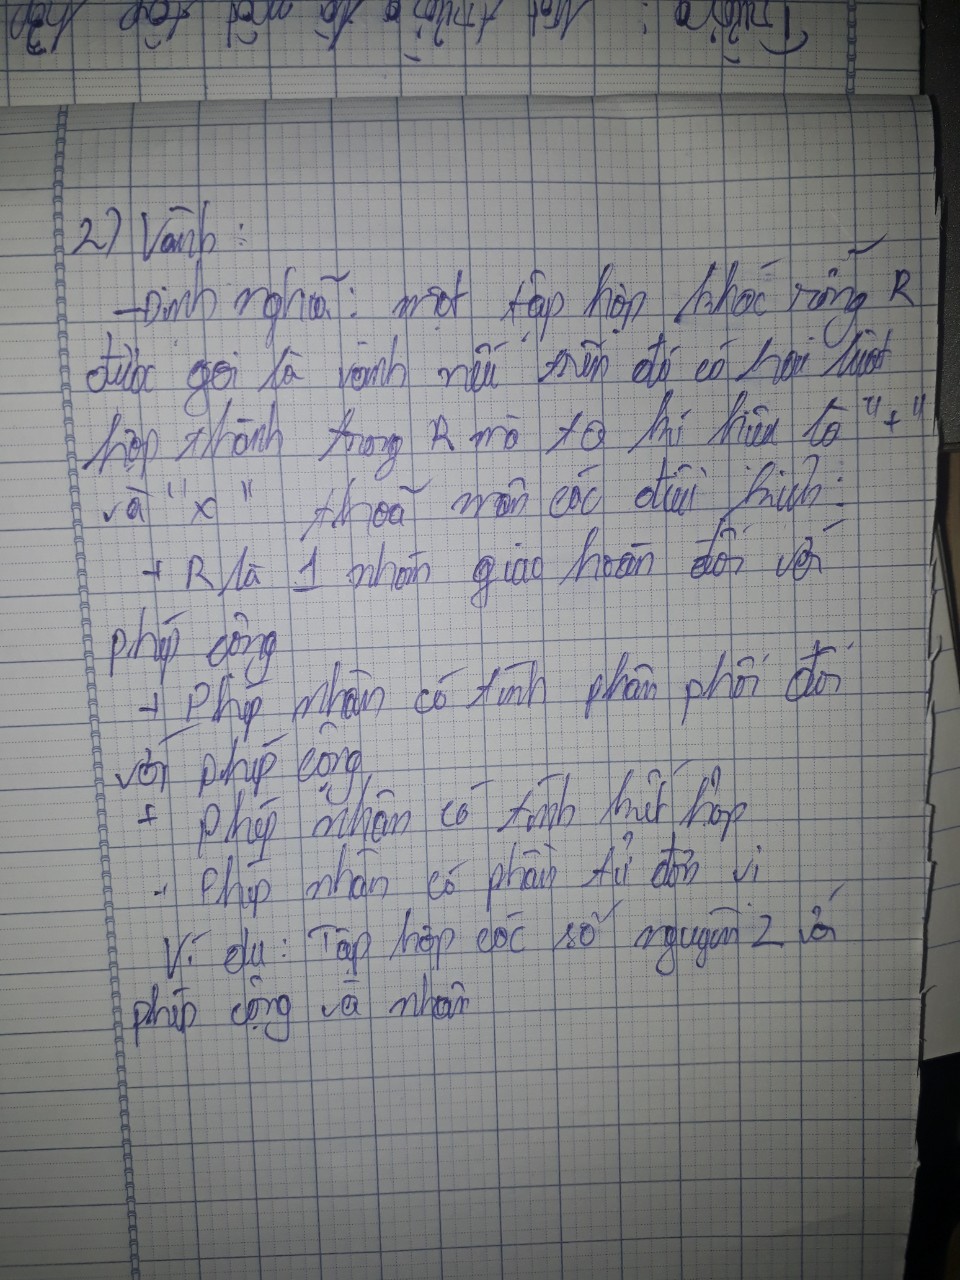 Trường : Một trường là một tập hợp
2) Vành :
- Định nghĩa : một tập hợp khác rỗng R
được gọi là vành nếu trên đó có hai luật
hợp thành trong R mà ta kí hiệu là "+"
và "x" thoã mãn các điều kiện :
+ R là 1 nhóm giao hoán đối với
phép cộng
+ Phép nhân có tính phân phối đối
với phép cộng
+ Phép nhân có tính kết hợp
+ Phép nhân có phần tử đơn vị
Ví dụ : Tập hợp các số nguyên Z với
phép cộng và nhân